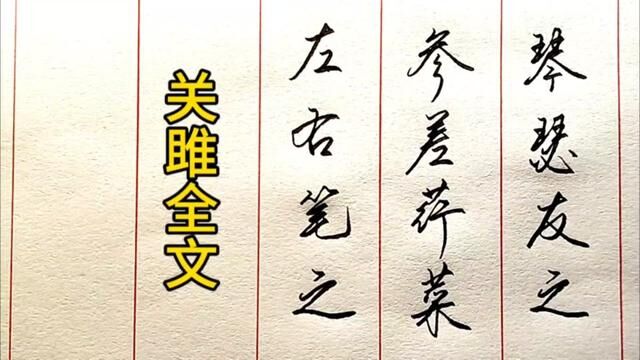 琴瑟友之
参差荇菜
左右笔之
关雎全文